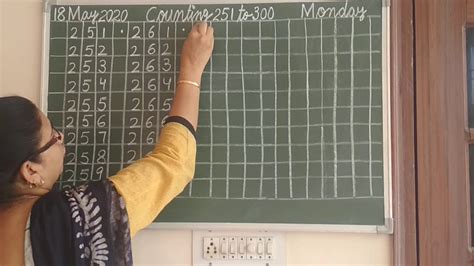 18 May 2020 Counting 251 to 300 Monday
251 · 261 ·
252 262
253 263
254 264
255 265
256 266
257 267
258 268
259